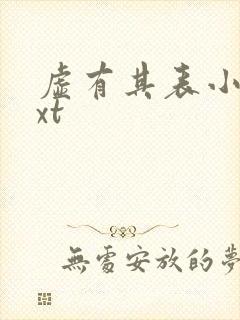 虛有其表小
xt
無處安放的夢